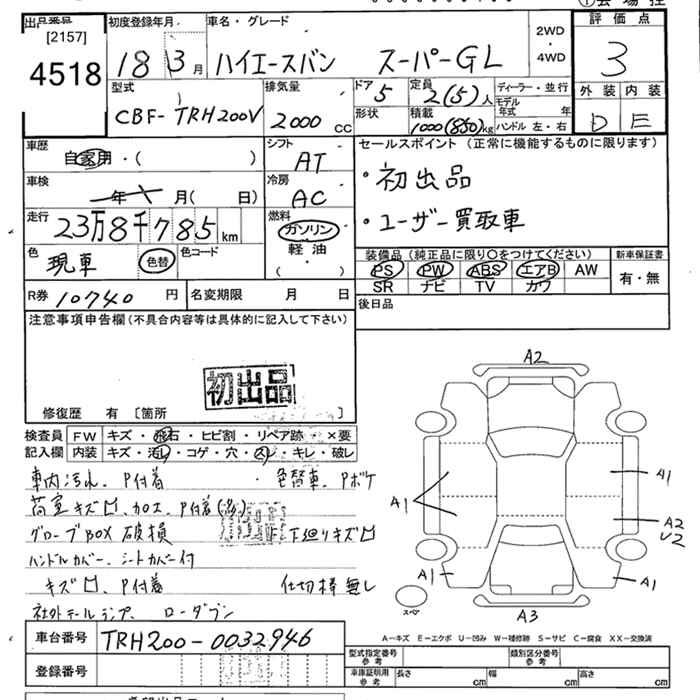 ①会場控
出品番号
[2157]
4518
初度登録年月
18年3月
車名・グレード
ハイエースバン スーパーGL
2WD
・
4WD
評価点
3
外装 内装
D E
型式
CBF-TRH200V
排気量
2000cc
ドア 5
形状
定員
2(5)人
積載
1000(850)kg
ディーラー・並行
モデル年式 年
ハンドル 左・右
車歴
自家用・( )
シフト
AT
セールスポイント (正常に機能するものに限ります)
・初出品
・ユーザー買取車
車検
年 月( 日)
冷房
AC
走行
23万8千785km
燃料
ガソリン
軽油
( )
色
現車
色替
色コード
装備品 (純正品に限り〇をつけてください)
PS PW ABS エアB AW
SR ナビ TV カワ
新車保証書
有・無
R券 10740円
名変期限 月 日
後日品
注意事項申告欄(不具合内容等は具体的に記入して下さい)
初出品
修復歴 有 〔箇所 〕
検査員記入欄
FW キズ・飛石・ヒビ割・リペア跡・×要
内装 キズ・汚レ・コゲ・穴・スレ・キレ・破レ
車内汚れ、P付着 ・色替車、Pボケ
荷室キズ凹、加工、P付着(多)
グローブBOX破損 下廻りキズ凹
ハンドルカバー、シートカバー付
キズ凹、P付着 仕切棒無し
社外テールランプ、ローダウン
A2
A1
A1
A2
U2
A1
A1
スペア
A3
A―キズ E―エクボ U―凹み W―補修跡 S―サビ C―腐食 XX―交換済
車台番号 TRH200-0032946
登録番号
型式指定番号 参考
類別区分番号 参考
車庫証明用 参考
長さ cm 幅 cm 高さ cm